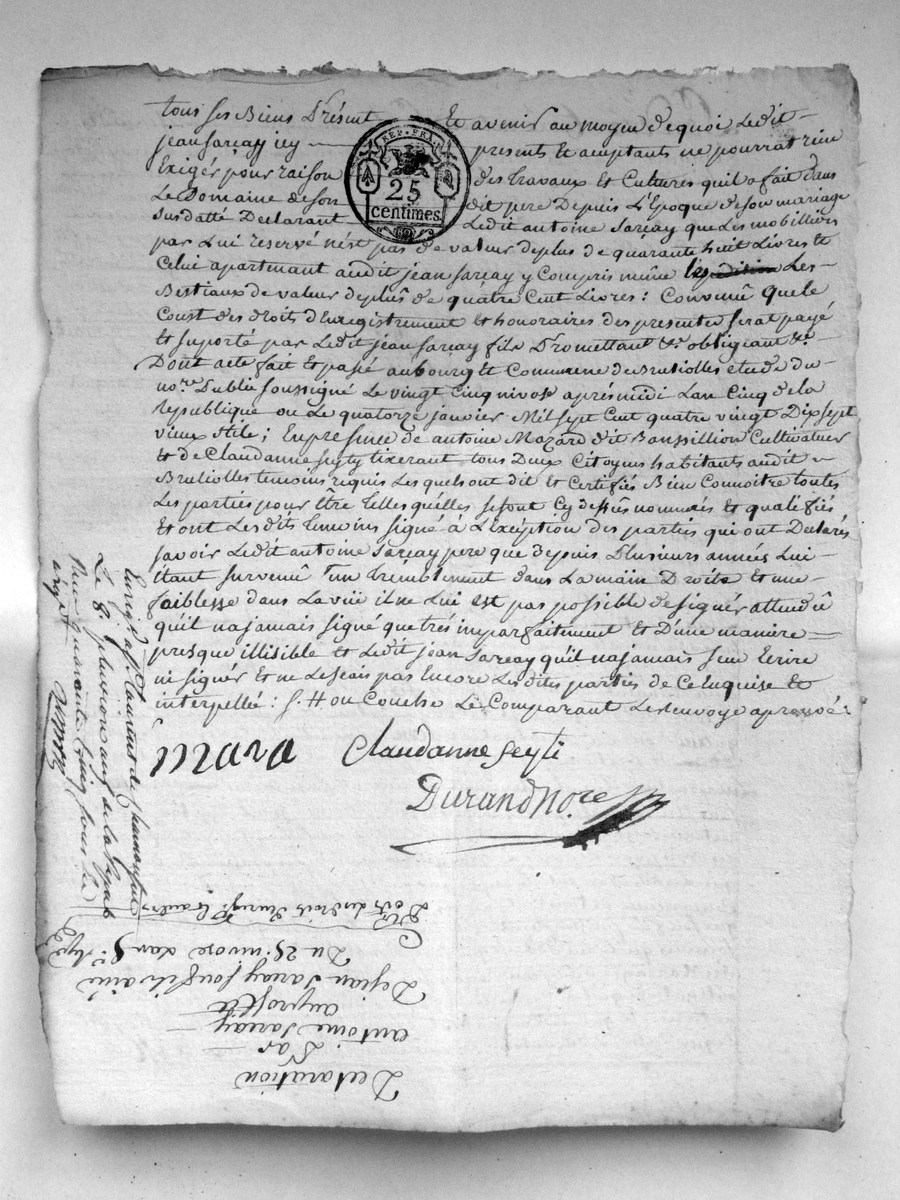 tous ses Biens Présent Et avenir au moyen de quoi Ledit
jean Sarcay icy presents Et aceptants ne pourrat rien
Exigér pour raison des travaux Et Cultures quil a fait dans
Le Domaine de son dit pere Depuis L'Epoque de son mariage
Susdatté Declarant Ledit antoine Sarcay que Les mobilliers
par Lui reservé nést pas de valeur de plus de quarante huit Livres Et
Celui apartenant audit jean Sarcay y Compris même Les
Bestiaux de valeur de plus de quâtre Cent Livres : Convenu que le
Coust des droits d'Enregistrement Et honoraires des presentes serat payé
Et suporté par Ledit jean Sarcay fils Promettant &a obligeant &a
Dont acte fait Et passé au bourg Et Commune de Brusiolles etude du
nore. Public Soussigné Le vingt Cinq nivose aprés midi Lan Cinq de la
Republique ou Le quatorze janvier Mil Sept Cent quatre vingt Dix Sept
vieux Stile ; En presence de antoine Mazard dit Banssillion Cultivateur
Et de Claudanne Seyty tixerant tous Deux Citoyens habitants audit
Brusiolles temoins requis Les quels ont dit Et Certifiés Bien Connoitre toutes
Les parties pour Être telles quélles se sont Cy dessus nommés Et qualifiés
Et ont Lesdits temoins signé à L'exéption des parties qui ont Declarés
savoir Ledit antoine Sarcay pere que depuis Plusieurs années Lui
Etant survenû un trémblement dans La main Droite Et une
faiblesse dans La vüe il ne Lui est pas possible de signér attendû
quil na jamais signé que trés imparfaitement Et D'une maniere
presque illisible Et Ledit jean Sarcay quil na jamais sçeu Ecrire
ni signér Et ne Le Scais pas Encore Lesdites parties de Ce Enquise Et
interpellé : Le Comparant Le Renvoye aprouvé
REP. FRA.
25
centimes
mara Claudanne Seyti
Durand Nore
Enregistré à St Laurent de Chamousset
Le 8 pluviose an 5 de la Repub
Reçu quarante Cinq sous
Declaration
Par
antoine Sarcay
au proffit
De jean Sarcay son fils ainé
Du 25 nivose Lan 5